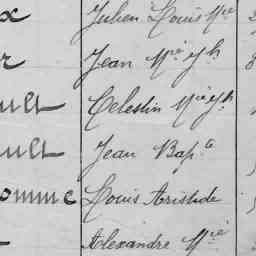 x Julien Louis Mie
r Jean Mie Jh
ult Celestin Mie Jh
ult Jean Bapte
omme Louis Aristide
Alexandre Mie